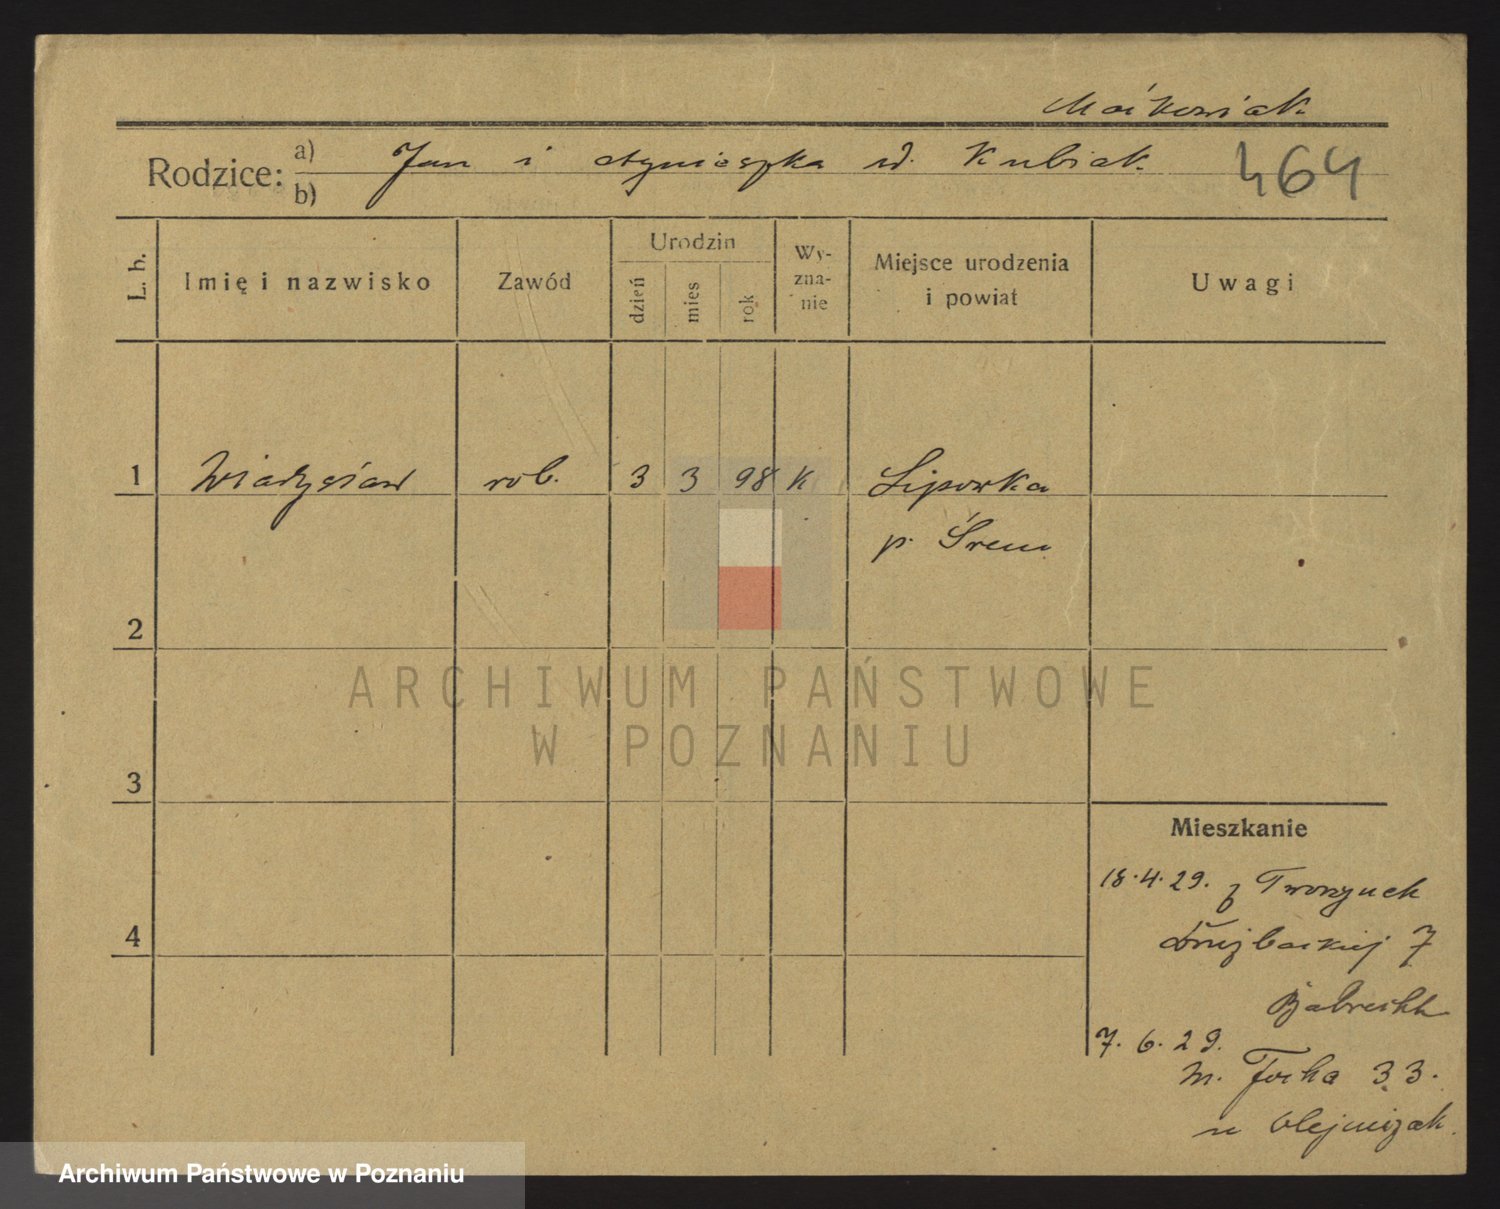 Maćkowiak
Rodzice: a) Jan i Agnieszka ur. Kubiak 464
b)
L. b. Imię i nazwisko Zawód Urodzin dzień mies rok Wy-zna-nie Miejsce urodzenia i powiat Uwagi
1 Władysław rob. 3 3 98 K Lipowka
p. Śrem
2
ARCHIWUM PAŃSTWOWE
W POZNANIU
3
Mieszkanie
18.4.29. z
Drużbackiej 7
4
7. 6. 29.
m. Focha 33.
u Olejniczak.
Archiwum Państwowe w Poznaniu